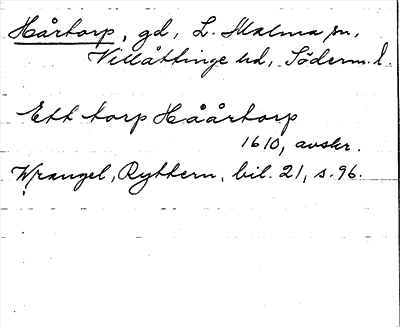 Hårtorp, gd, L. Malma sn,
Villåttinge hd, Söderm. l.
Ett torp Håårtorp
1610, avskr.
Wrangel, Ryttern, bil. 21, s. 96.